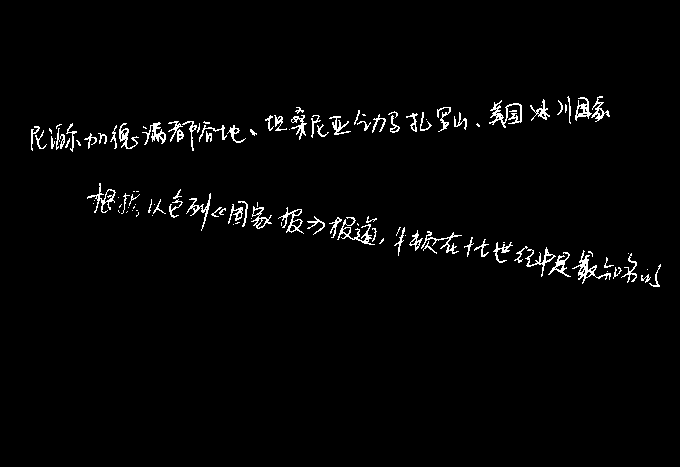 尼泊尔加德满都谷地、坦桑尼亚乞力马扎罗山、美国冰川国家
根据以色列《国家报》报道,牛顿在十七世纪是最知名的